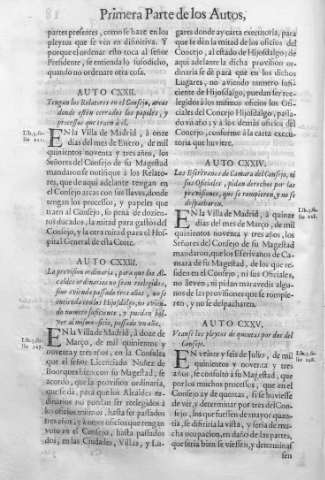 Primera Parte de los Autos,
partes presentes, como se haze en los
pleytos que se ven en difinitiva. Y
porque el ordenar esto toca al señor
Presidente, se entienda lo susodicho,
quando no ordenare otra cosa.
AUTO CXXII.
Tengan los Relatores en el Consejo, arcas
donde estèn cerrados los papeles, y
processos que traen à èl.
EN la Villa de Madrid, à onze
dias del mes de Enero, de mil
quinientos noventa y tres años, los
Señores del Consejo de su Magestad
mandaron se notifique à los Relato-
res, que de aqui adelante tengan en
el Consejo arcas con sus llaves, donde
tengan los processos, y papeles que
traen al Consejo, so pena de dozien-
tos ducados, la mitad para gastos del
Consejo, y la otra mitad para el Hos-
pital General de esta Corte.
AUTO CXXIII.
La provision ordinaria, para que los Al-
caldes ordinarios no sean reelegidos,
sino aviendo passado tres años, no se
entienda con los Hijosdalgo, no aviendo
numero suficiente, y puedan bol-
ver al mismo oficio, passado un año.
EN la Villa de Madrid, à doze de
Março, de mil quinientos y
noventa y tres años, en la Consulta
que el señor Licenciado Nuñez de
Boorques hizo con su Magestad, se
acordò, que la provision ordinaria,
que se dà, para que los Alcaldes or-
dinarios no puedan ser reelegidos à
los oficios mismos, hasta ser passados
tres años, y à otros oficios que tengan
voto en el Consejo, hasta passados
dos, en las Ciudades, Villas, y Lu-
gares donde ay carta executoria, para
que se dèn la mitad de los oficios del
Concejo, al estado de Hijosdalgo; de
aqui adelante la dicha provision or-
dinaria se dè para que en los dichos
Lugares, no aviendo numero sufi-
ciente de Hijosdalgo, puedan ser ree-
legidos à los mismos oficios los Ofi-
ciales del Concejo Hijosdalgo, passa-
do un año; y à los demàs oficios del
Concejo, conforme à la carta execu-
toria que huviere.
AUTO CXXIV.
Los Escrivanos de Camara del Consejo, ni
sus Oficiales, pidan derechos por las
provisiones, que se rompieren, y no se
despacharen.
EN la Villa de Madrid, à quinze
dias del mes de Março, de mil
quinientos noventa y tres años, los
Señores del Consejo de su Magestad
mandaron, que los Escrivanos de Ca-
mara de su Magestad, de los que re-
siden en el Consejo, ni sus Oficiales,
no lleven, ni pidan maravedis algu-
nos de las provisiones que se rompie-
ren, y no se despacharen.
AUTO CXXV.
Veanse los pleytos de quentas por dos del
Consejo.
EN veinte y seis de Julio, de mil
quinientos y noventa y tres
años, se consultò à su Magestad, que
por los muchos processos, que en el
Consejo ay de quentas, si se huviesse
de ver, y determinar por tres del Con-
sejo, los que fuessen de mayor quan-
tia, se difiriria la vista, y seria de mu-
cha ocupacion, en daño de las partes,
que seria bien se viessen, y determinas-
sen